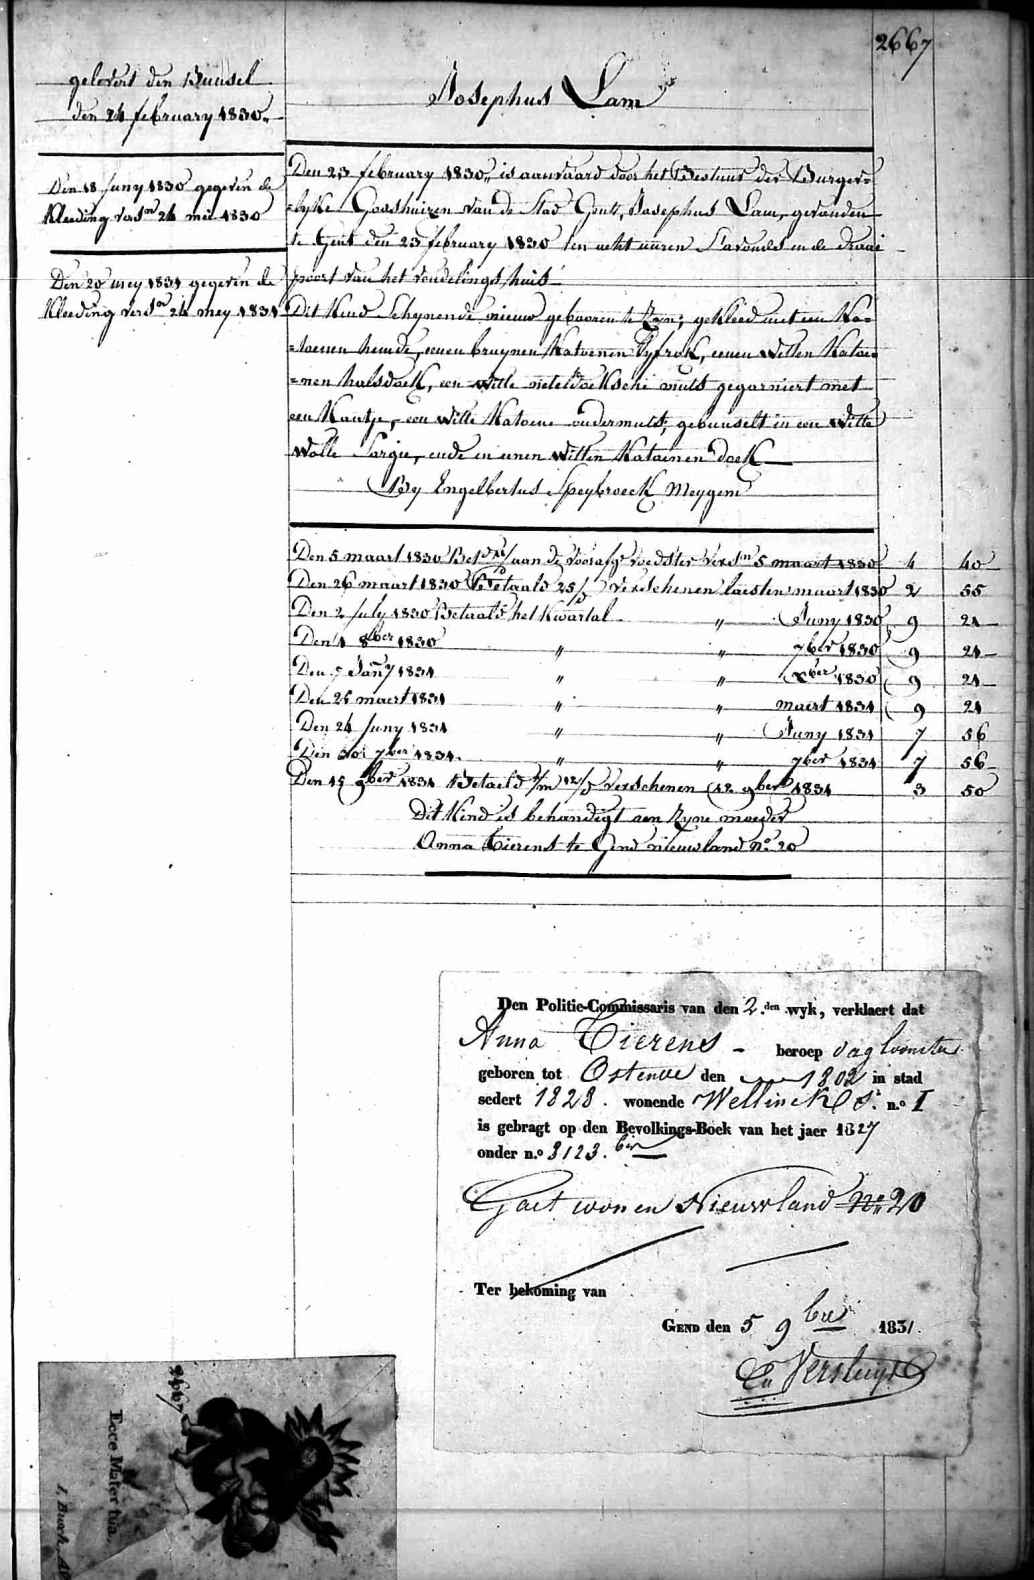 2667
gelevert den Bunsel
den 24 february 1830
Den 18 Juny 1830 gegeven de
Kleeding versn 24 mei 1830
Den 20 mey 1831 gegeven de
Kleeding versn 24 mey 1831
Josephus Lam
Den 23 february 1830 is aanvaard door het Bestuur der Burger=
=lyke Godshuizen van de Stad Gent, Josephus Lam, gevonden
te Gent den 23 february 1830 ten acht uuren S'avonds in de draai
poort van het vondelings huis
Dit Kind Schynende nieuw gebooren te Zyn; gekleed met een Ka=
=toenen hemde, eenen bruynen Katoenen lyfrok, eenen witten Katoe=
=nen halsdoek, een witte neteldoeksche muts gegarniert met
een Kantje, een witte Katoene ondermuts, gebunselt in een witte
wolle Sargie, ende in eenen witten Katoenen doek
By Engelbertus Speybroeck Meygem
Den 5 maart 1830 Bet aan de voedster versn 5 maart 1830 4 40
Den 26 maart 1830 Betaald 25/ verschenen laesten maart 1830 2 55
Den 2 July 1830 Betaald het Kwartal " Juny 1830 9 24
Den 4 8ber 1830 " " 7ber 1830 9 24
Den 5 Jany 1831 " " Xber 1830 9 24
Den 26 maert 1831 " " maert 1831 9 24
Den 24 Juny 1831 " " Juny 1831 7 56
Den 30 7ber 1831. " " 7ber 1831 7 56
Den 15 9ber 1831 Betaeld verschenen 12 9ber 1831 3 50
Dit Kind is behandigt aen Zyne moeder
Anna Tierens te Gend nieuwland no 20
Den Politie-Commissaris van den 2.den wyk, verklaert dat
Anna Tierens - beroep dagloonster
geboren tot Ostende den 1802 in stad
sedert 1828. wonende Wellinck St n.o I
is gebragt op den Bevolkings-Boek van het jaer 1827
onder n.o 3123. bis
Gaet wonen Nieuwland No 20
Ter bekoming van
Gend den 5 9ber 1831.
Versluys
2667
Ecce Mater tua.